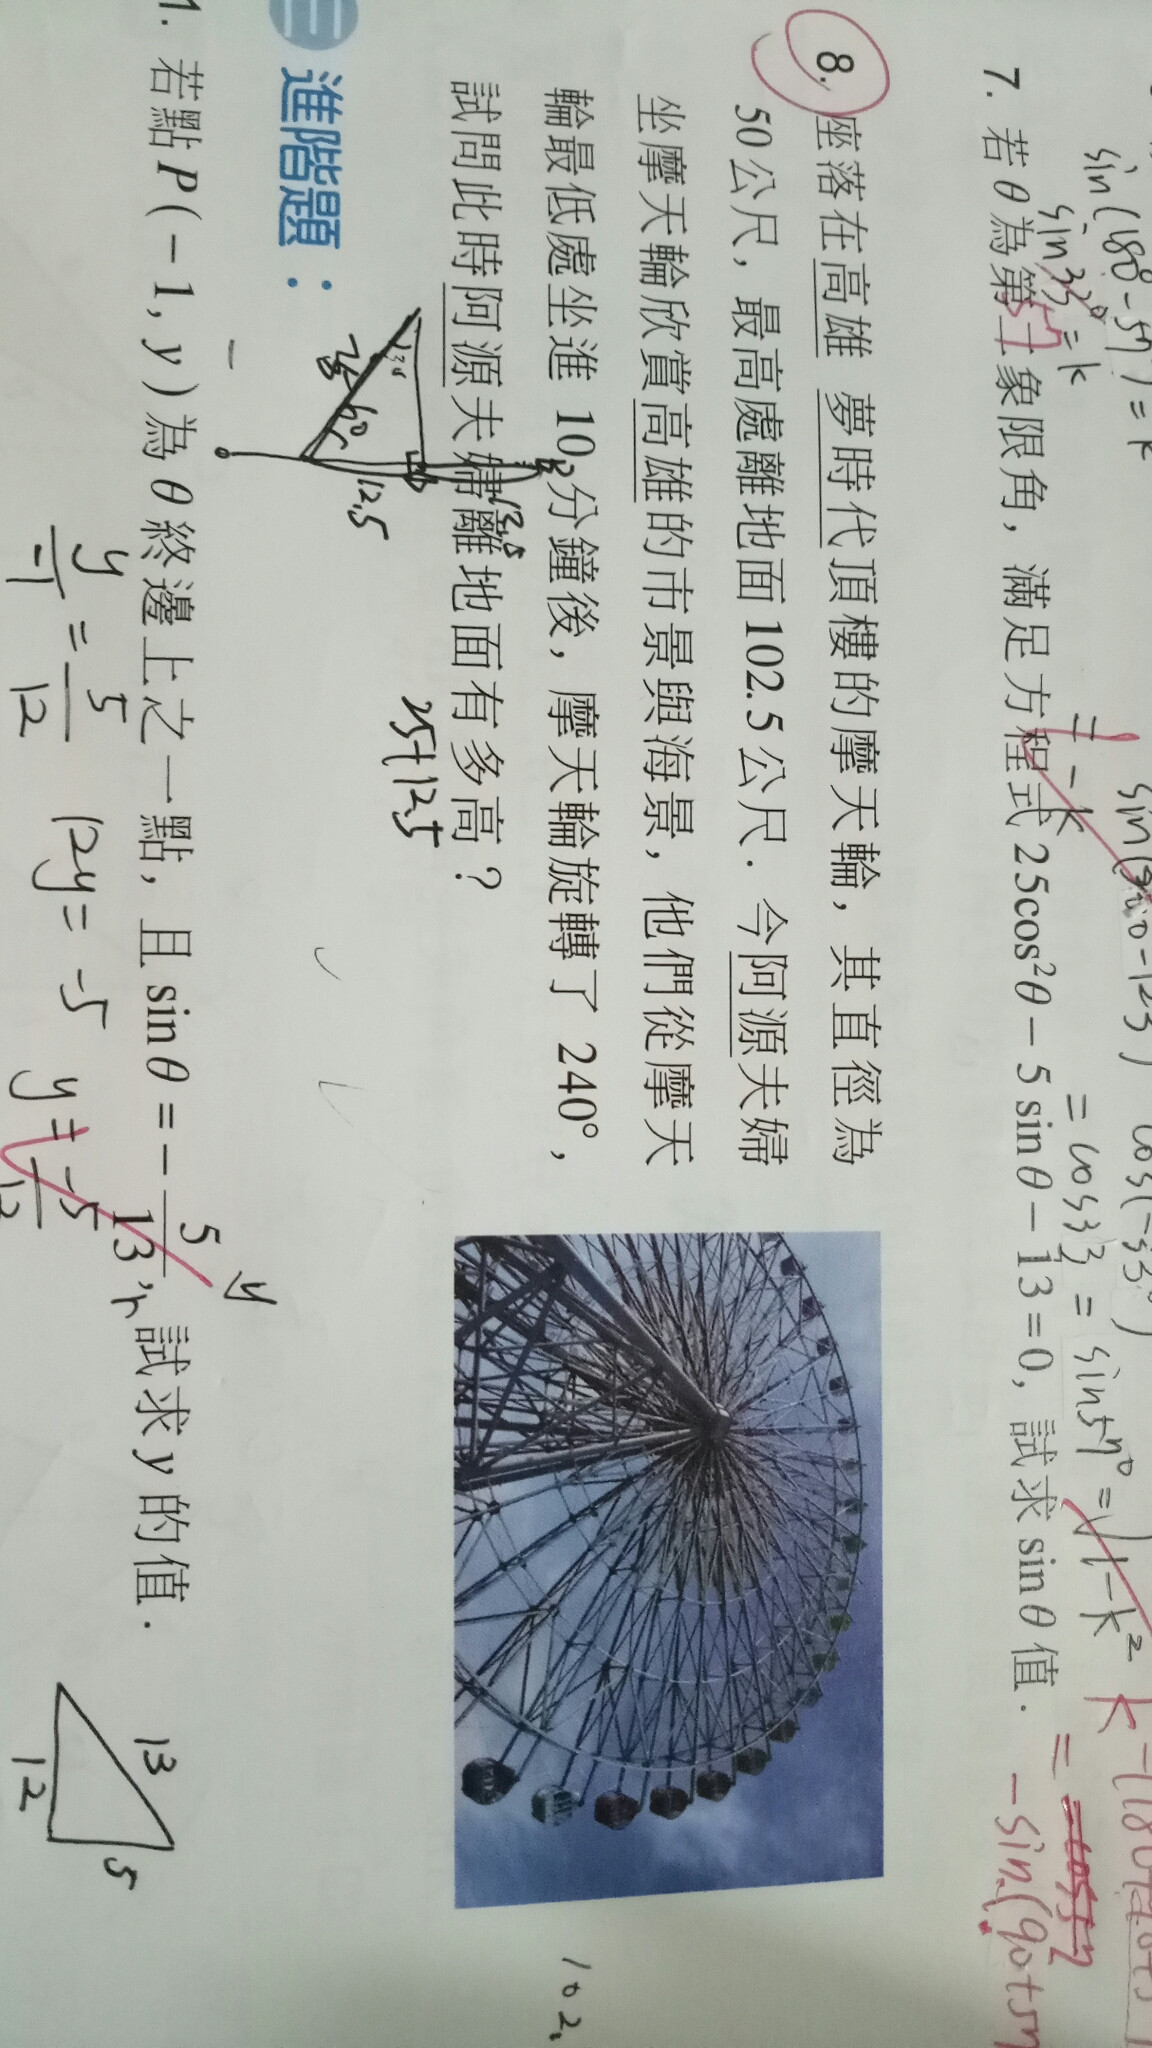 sin(180°-57)=k
sin33°=k
=-k
=cos33=sin57°=√1-k²
7. 若θ為第三象限角，滿足方程式25cos²θ-5sinθ-13=0，試求sinθ值．
-sin(90+57
8. 座落在高雄 夢時代頂樓的摩天輪，其直徑為
50公尺，最高處離地面102.5公尺．今阿源夫婦
坐摩天輪欣賞高雄的市景與海景，他們從摩天
輪最低處坐進 10 分鐘後，摩天輪旋轉了 240°，
試問此時阿源夫婦離地面有多高？
102.
60°
12.5
25+12.5
三 進階題：
1. 若點P(-1,y)為θ終邊上之一點，且sinθ=-5/13，試求y的值．
y/-1=5/12 12y=-5 y=-5/12
13
12
5